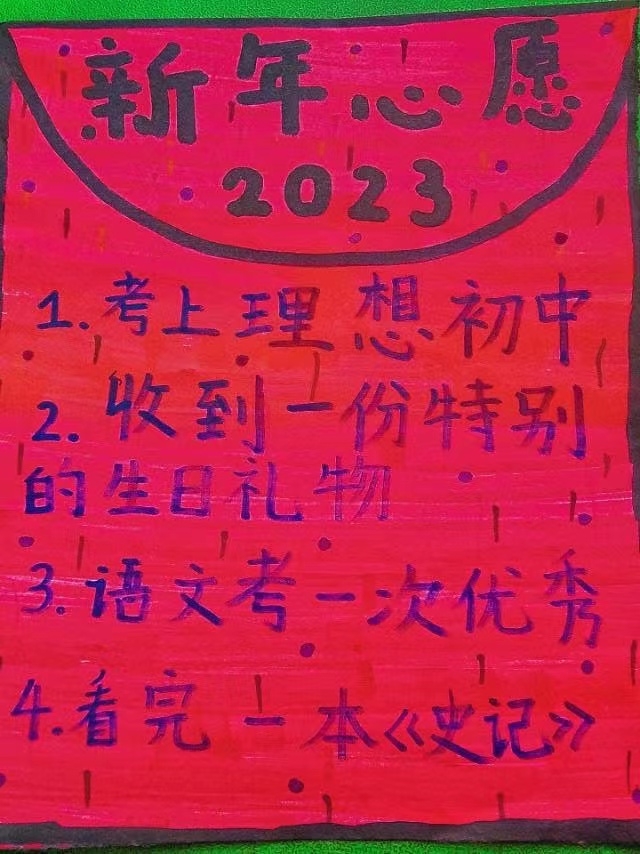 新年心愿
2023
1.考上理想初中
2.收到一份特别
的生日礼物
3.语文考一次优秀
4.看完一本《史记》